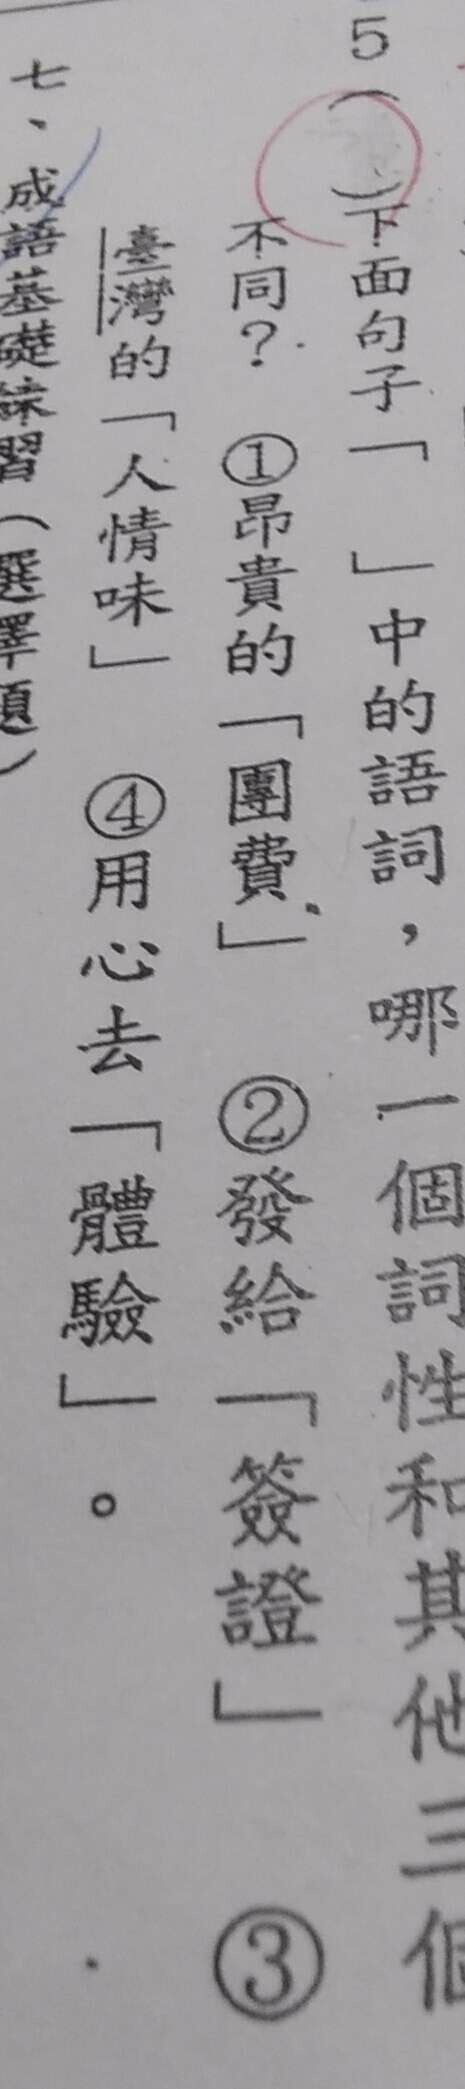 5（　）下面句子「　」中的語詞，哪一個詞性和其他三個
不同？　①昂貴的「團費」　②發給「簽證」　③
臺灣的「人情味」　④用心去「體驗」。
七、成語基礎練習（選擇題）